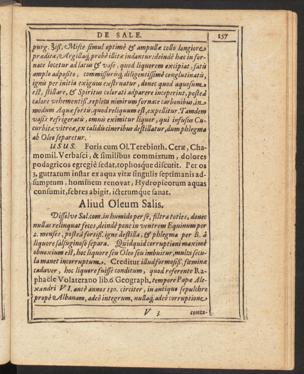 DE SALE. 157
purg. ℥iß. Misce simul optimè & ampullæ collo longiore
prædita, Argillaq; probè illitæ indantur: deindè hæc in for-
nace locetur ad latus & vase, quod liquorem excipiat, satis
amplo adposito, commissurisq; diligentissimè conglutinatis,
igni per initia exiguus exstruatur, donec quod aquosum
est, stillare, & Spiritus colorati adparere inceperint, posteà
calore vehementiß. repletis nimirum fornace carbonibus, in-
modum Aquæ fortis quod reliquum est, expellitur. Tandem
vasis refrigeratis, omnis eximitur liquor, qui infusus Cu-
curbitæ vitreæ, ex calidis cineribus destillatur, dum phlegma
ab Oleo separetur.
USUS. Foris cum Ol. Terebinth. Ceræ, Cha-
momil. Verbasci, & similibus commixtum, dolores
podagricos egregiè sedat, tophosque discutit. Per os
3. guttatum instar ex aqua vitæ singulis septimanis ad-
sumptum, hominem renovat, Hydropicorum aquas
consumit, febres abigit, icterumque sanat.
Aliud Oleum Salis.
Dissolve Sal. com. in humido per se, filtra toties, donec
nullas relinquat feces, deindè pone in ventrem Equinum per
2. menses, posteà fortiss. igne destilla, & phlegma per B. à
liquore salsuginoso separa. Quidquid corruptioni maximè
obnoxium est, hoc liquore seu Oleo seu imbuitur, multo secu-
la manet incorruptum. Creditur illud formosiß. fœminæ
cadaver, hoc liquore fuisse conditum, quod referente Ra-
phaële Volaterano lib. 6. Geograph. tempore Papæ Ale-
xandri VI. ante annos 150. circiter, in antiquo sepulchro
propè Albanam, adeò integrum, nullaq; adeò corruptione
V 3. conta-